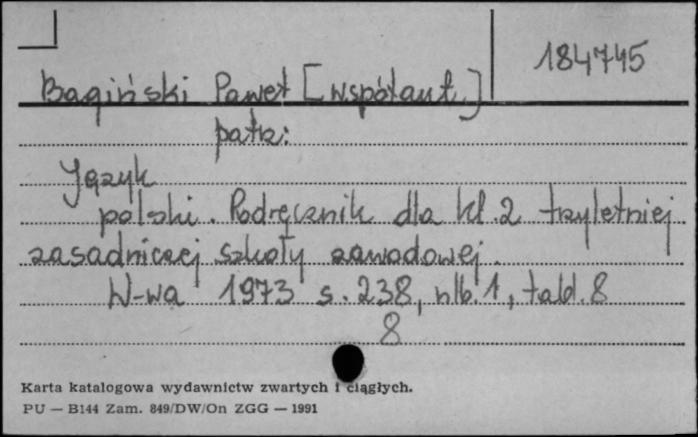 184745
Bagiński Paweł [współaut.]
patrz:
Język
polski. Podręcznik dla kl. 2 trzyletniej
zasadniczej szkoły zawodowej.
W-wa 1973 s. 238, nlb. 1, tabl. 8
8
Karta katalogowa wydawnictw zwartych i ciągłych.
PU — B144 Zam. 849/DW/On ZGG — 1991